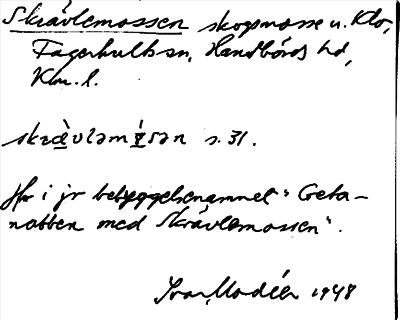 Skrävlemossen skogsmosse u. Klo,
Fagerhults sn, Handbörds hd,
Klm. l.
skræ̀vləmɷ́sən s. 31.
Hör i jr bebyggelsenamnet "Geta-
nabben med Skrävlemossen".
Ivar Modéer 1948